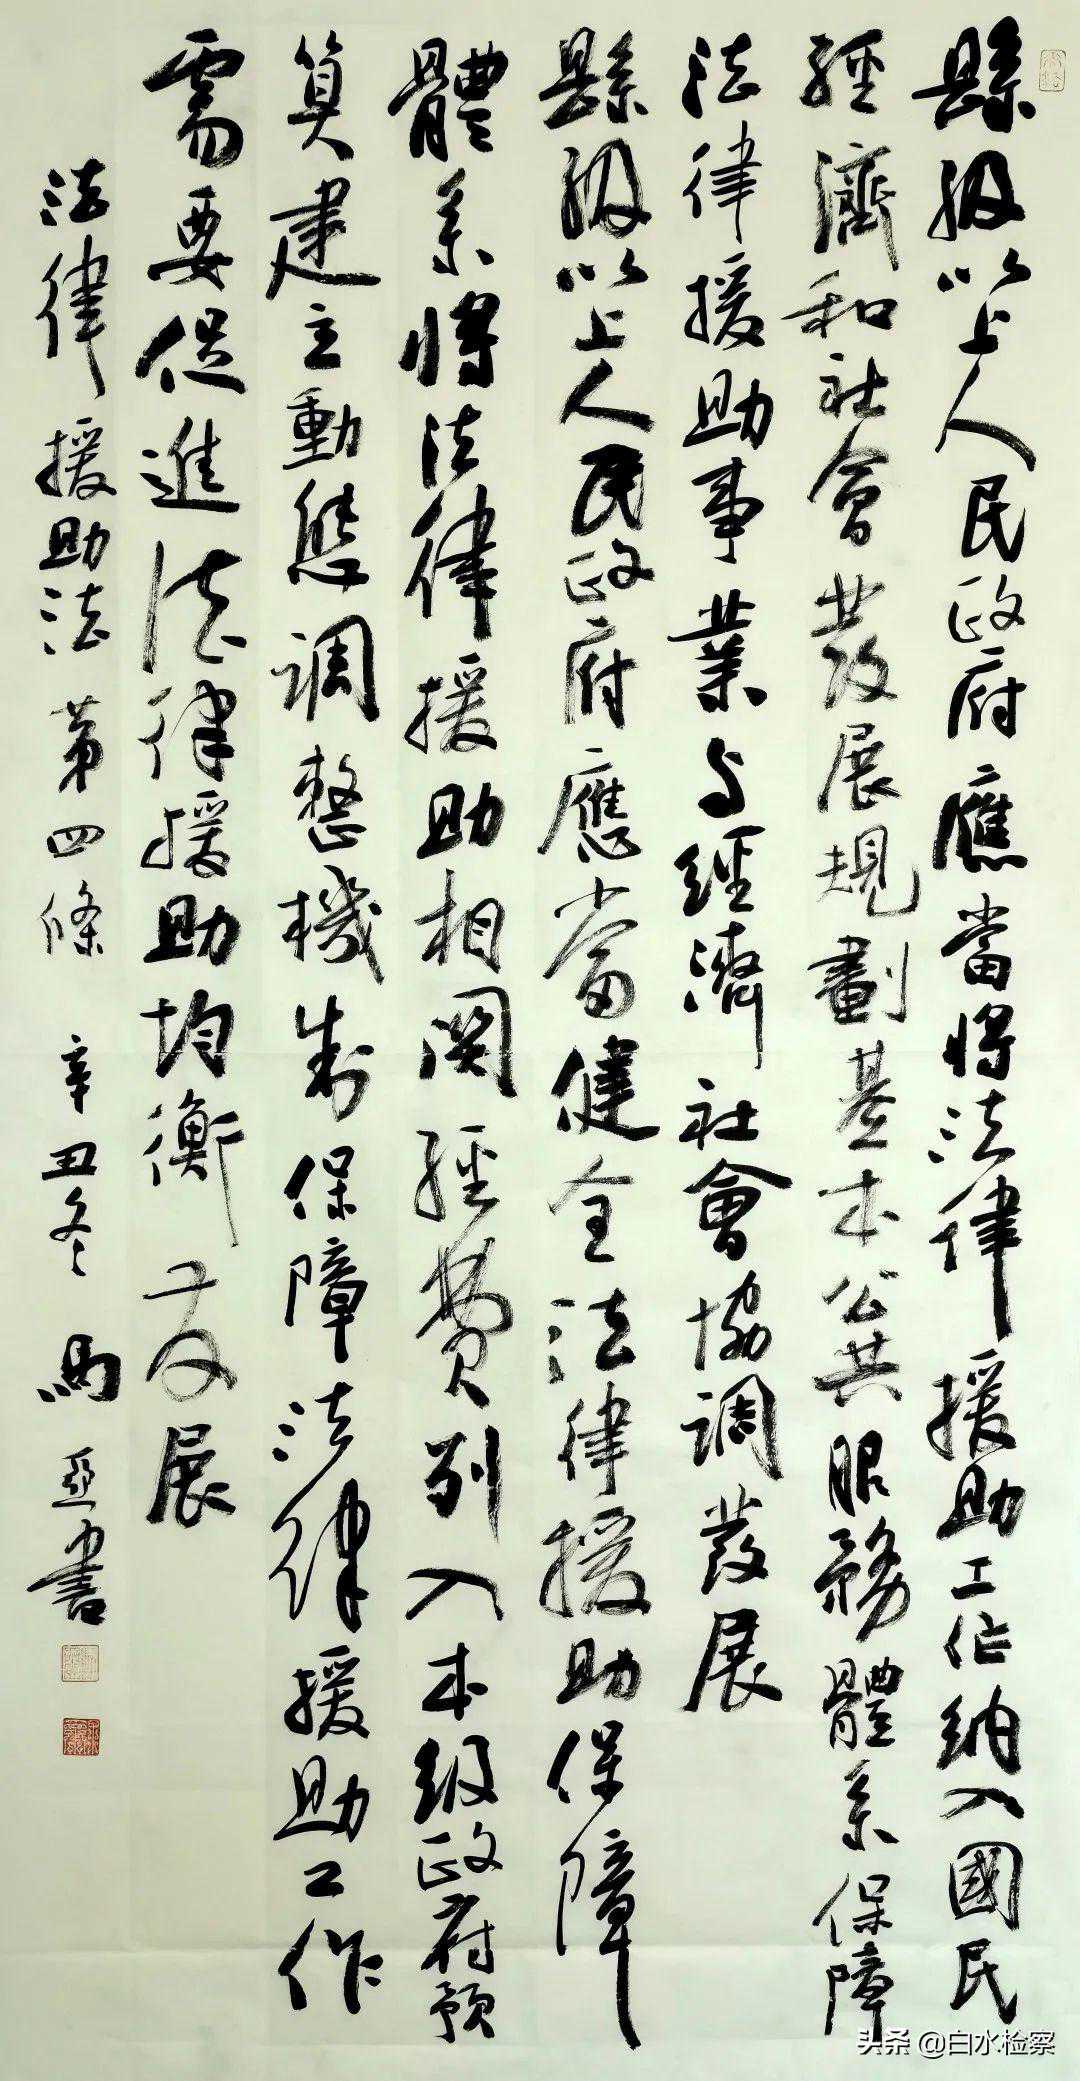 縣級以上人民政府應當將法律援助工作納入國民
經濟和社會發展規劃基本公共服務體系保障
法律援助事業与經濟社會協調發展
縣級以上人民政府應當健全法律援助保障
體系將法律援助相関經費列入本級政府預
算建立動態调整機制保障法律援助工作
需要促進法律援助均衡发展
法律援助法 第四條 辛丑冬 馬亞書
头条 @白水检察